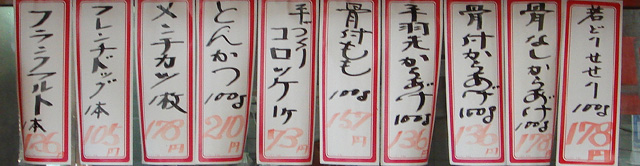 若どりせせり 100g 178円
骨なしからあげ 100g 178円
骨付からあげ 100g 136円
手羽先からあげ 100g 136円
骨付もも 100g 157円
手づくりコロッケ 1ケ 73円
とんかつ 100g 210円
メンチカツ 1枚 178円
フレンチドッグ 1本 105円
フランクフルト 1本 円